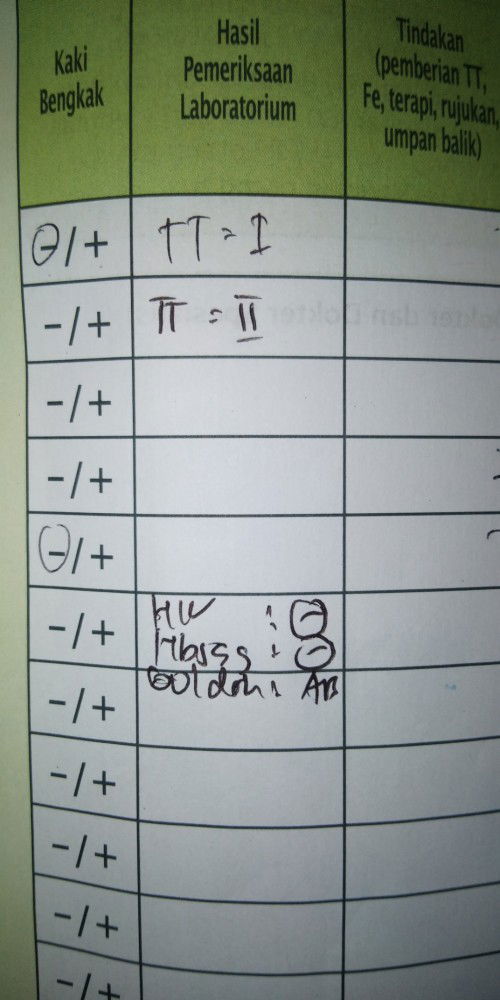 Kaki
Bengkak
Hasil
Pemeriksaan
Laboratorium
Tindakan
(pemberian TT,
Fe, terapi, rujukan,
umpan balik)
-/+ TT = I
-/+ TT = II
-/+
-/+
-/+
-/+ HIV : -
HbsAg : -
-/+ Goldah : AB
-/+
-/+
-/+
-/+